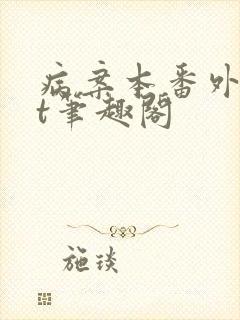 病案本番外
t笔趣阁
施琰